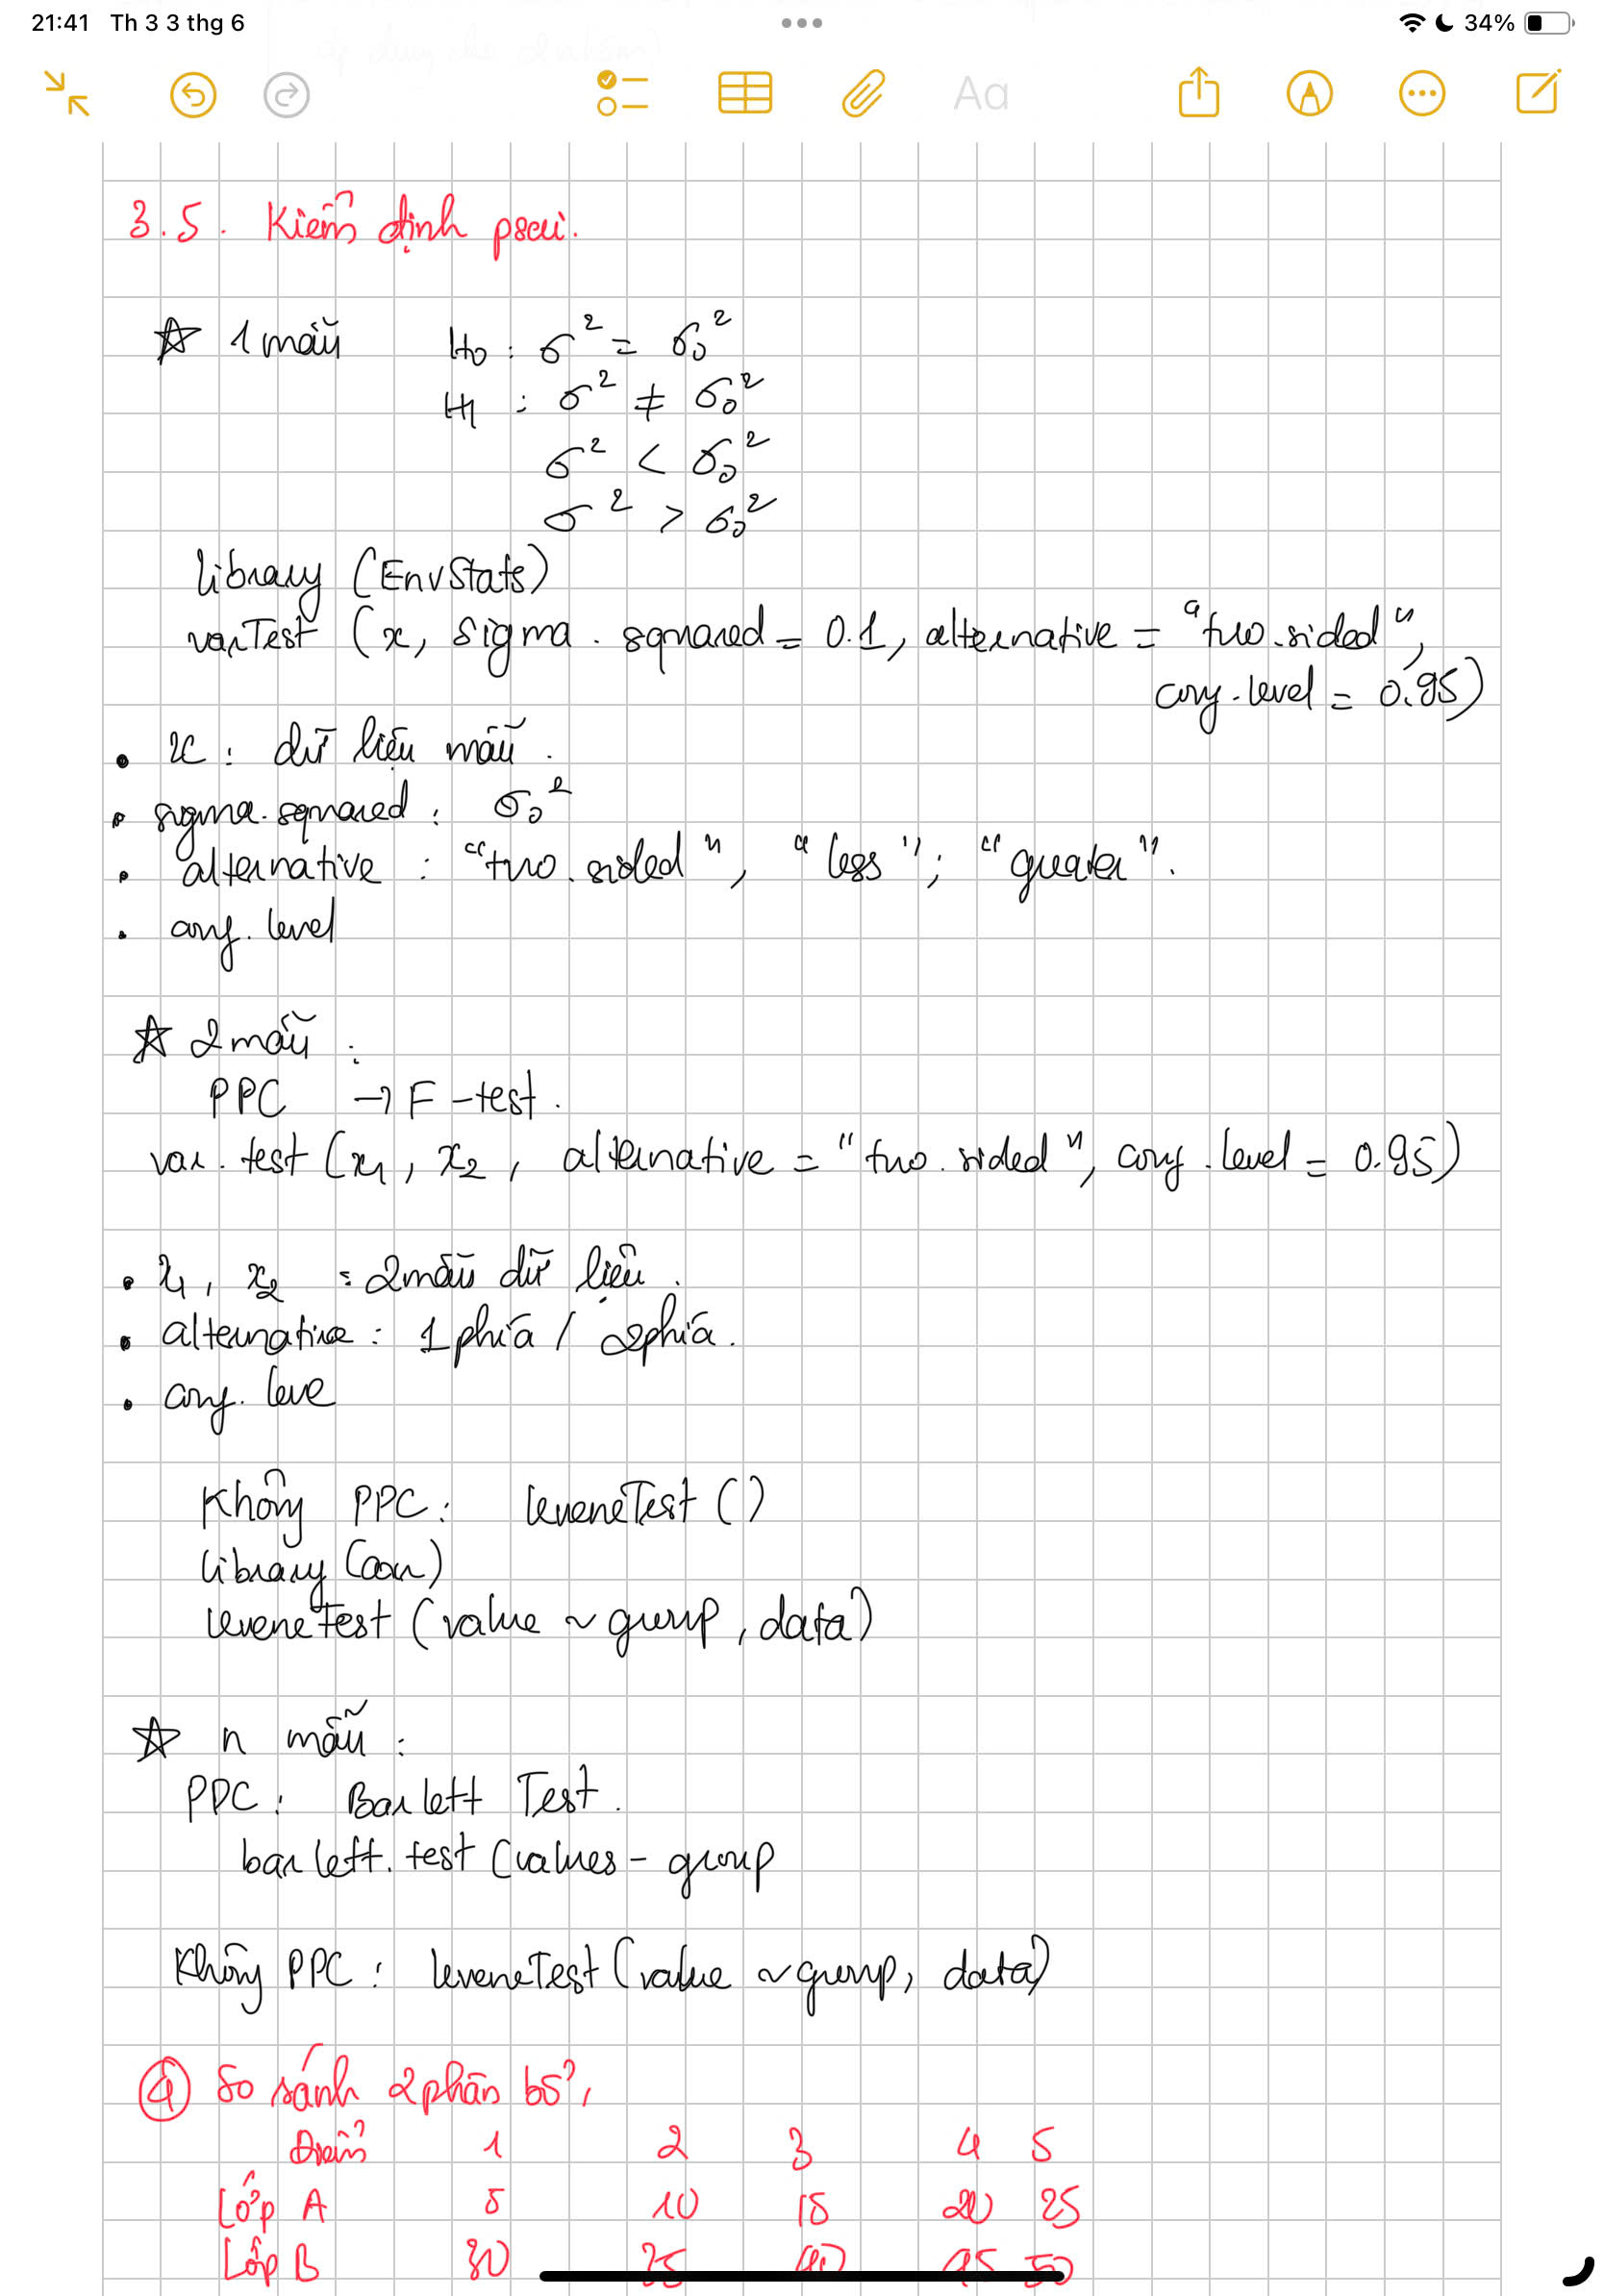 21:41 Th 3 3 thg 6
34%
Aa
3.5. Kiểm định psai.
☆ 1 mẫu H0 : σ² = σ0²
H1 : σ² ≠ σ0²
σ² < σ0²
σ² > σ0²
library (EnvStats)
varTest (x, sigma.squared = 0.1, alternative = "two.sided",
conf.level = 0.95)
• x : dữ liệu mẫu.
• sigma.squared : σ0²
• alternative : "two.sided", "less"; "greater".
• conf.level
☆ 2 mẫu :
PPC → F-test.
var.test (x1, x2, alternative = "two.sided", conf.level = 0.95)
• x1, x2 : 2 mẫu dữ liệu.
• alternative : 1 phía / 2 phía.
• conf.leve
Không PPC : leveneTest ()
library (car)
leveneTest (value ~ group, data)
☆ n mẫu :
PPC : Barlett Test.
barlett.test (values - group
Không PPC : leveneTest (value ~ group, data)
④ So sánh 2 phân bố,
Điểm 1 2 3 4 5
Lớp A 5 10 15 20 25
Lớp B 30 35 40 45 50